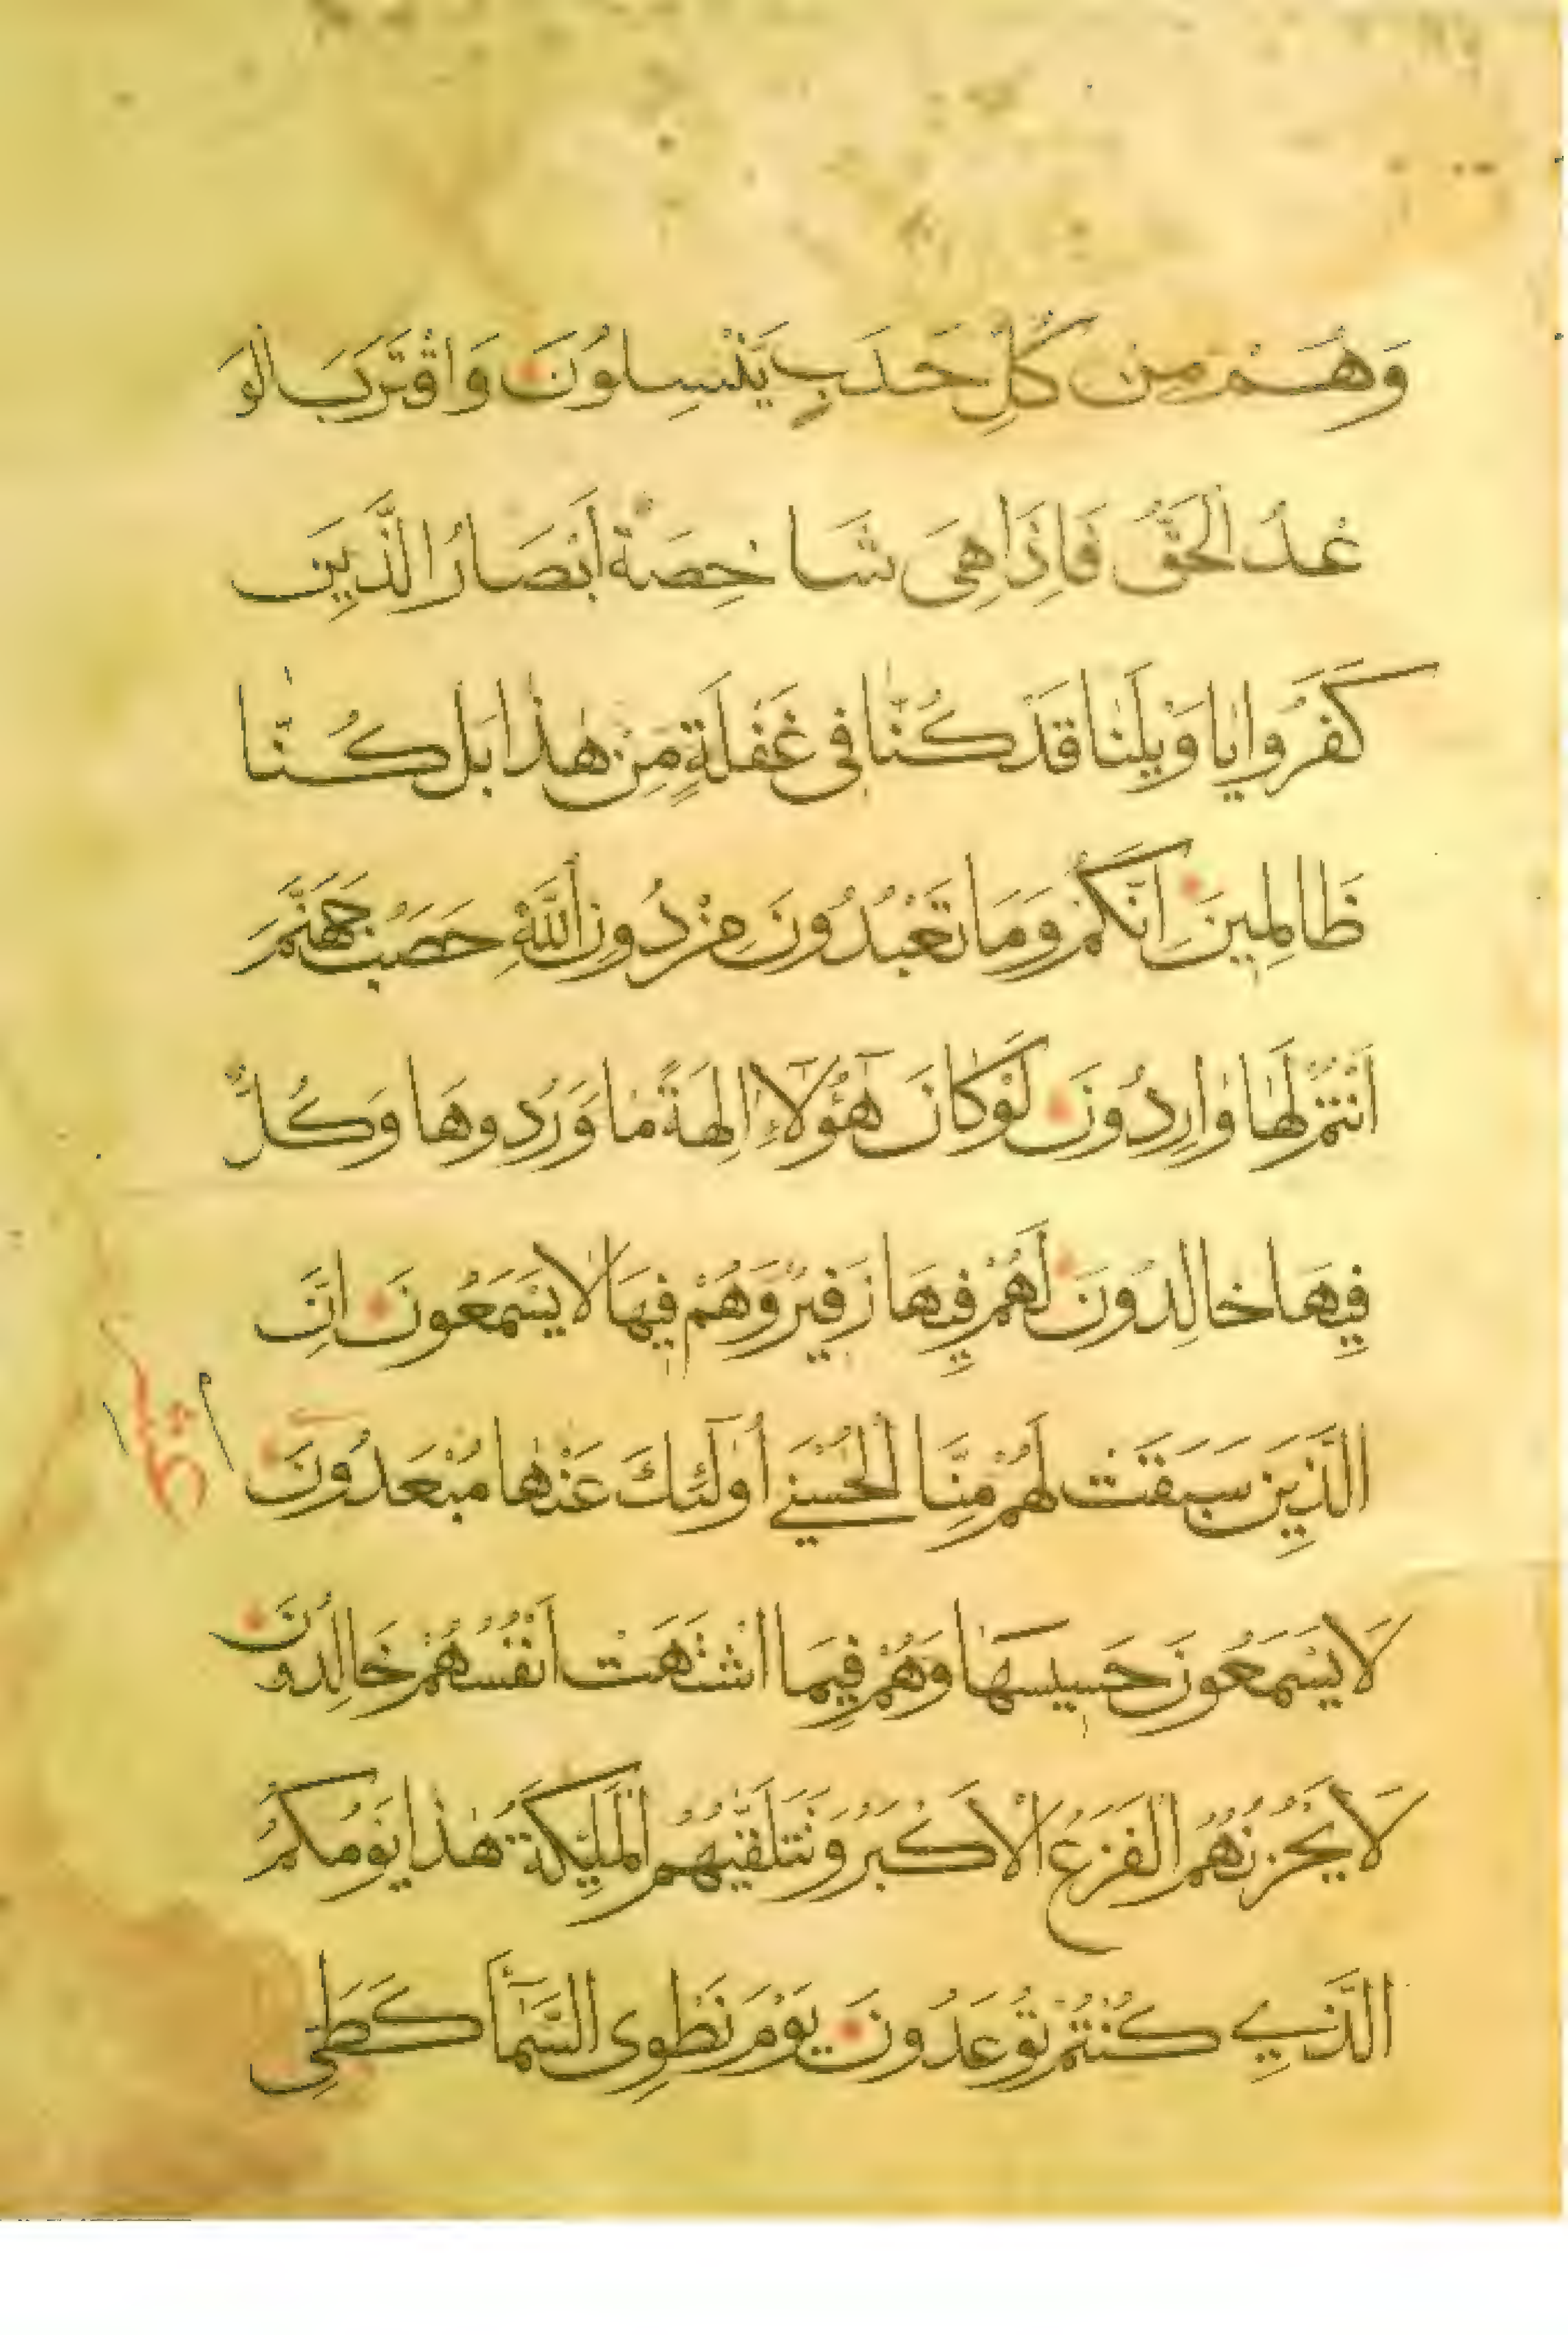 وَهُمْ مِنْ كُلِّ حَدَبٍ يَنْسِلُونَ وَاقْتَرَبَ الْوَ
عْدُ الْحَقُّ فَاِذَا هِىَ شَاخِصَةٌ اَبْصَارُ الَّذِينَ
كَفَرُوا يَا وَيْلَنَا قَدْ كُنَّا فِى غَفْلَةٍ مِنْ هٰذَا بَلْ كُنَّا
ظَالِمِينَ اِنَّكُمْ وَمَا تَعْبُدُونَ مِنْ دُونِ اللّٰهِ حَصَبُ جَهَنَّمَ
اَنْتُمْ لَهَا وَارِدُونَ لَوْ كَانَ هٰٓؤُلَاءِ اٰلِهَةً مَا وَرَدُوهَا وَكُلٌّ
فِيهَا خَالِدُونَ لَهُمْ فِيهَا زَفِيرٌ وَهُمْ فِيهَا لَا يَسْمَعُونَ اِنَّ
الَّذِينَ سَبَقَتْ لَهُمْ مِنَّا الْحُسْنٰى اُولٰٓئِكَ عَنْهَا مُبْعَدُونَ
لَا يَسْمَعُونَ حَسِيسَهَا وَهُمْ فِيمَا اشْتَهَتْ اَنْفُسُهُمْ خَالِدُونَ
لَا يَحْزُنُهُمُ الْفَزَعُ الْاَكْبَرُ وَتَتَلَقّٰيهُمُ الْمَلٰئِكَةُ هٰذَا يَوْمُكُمُ
الَّذِى كُنْتُمْ تُوعَدُونَ يَوْمَ نَطْوِى السَّمَآءَ كَطَىِّ